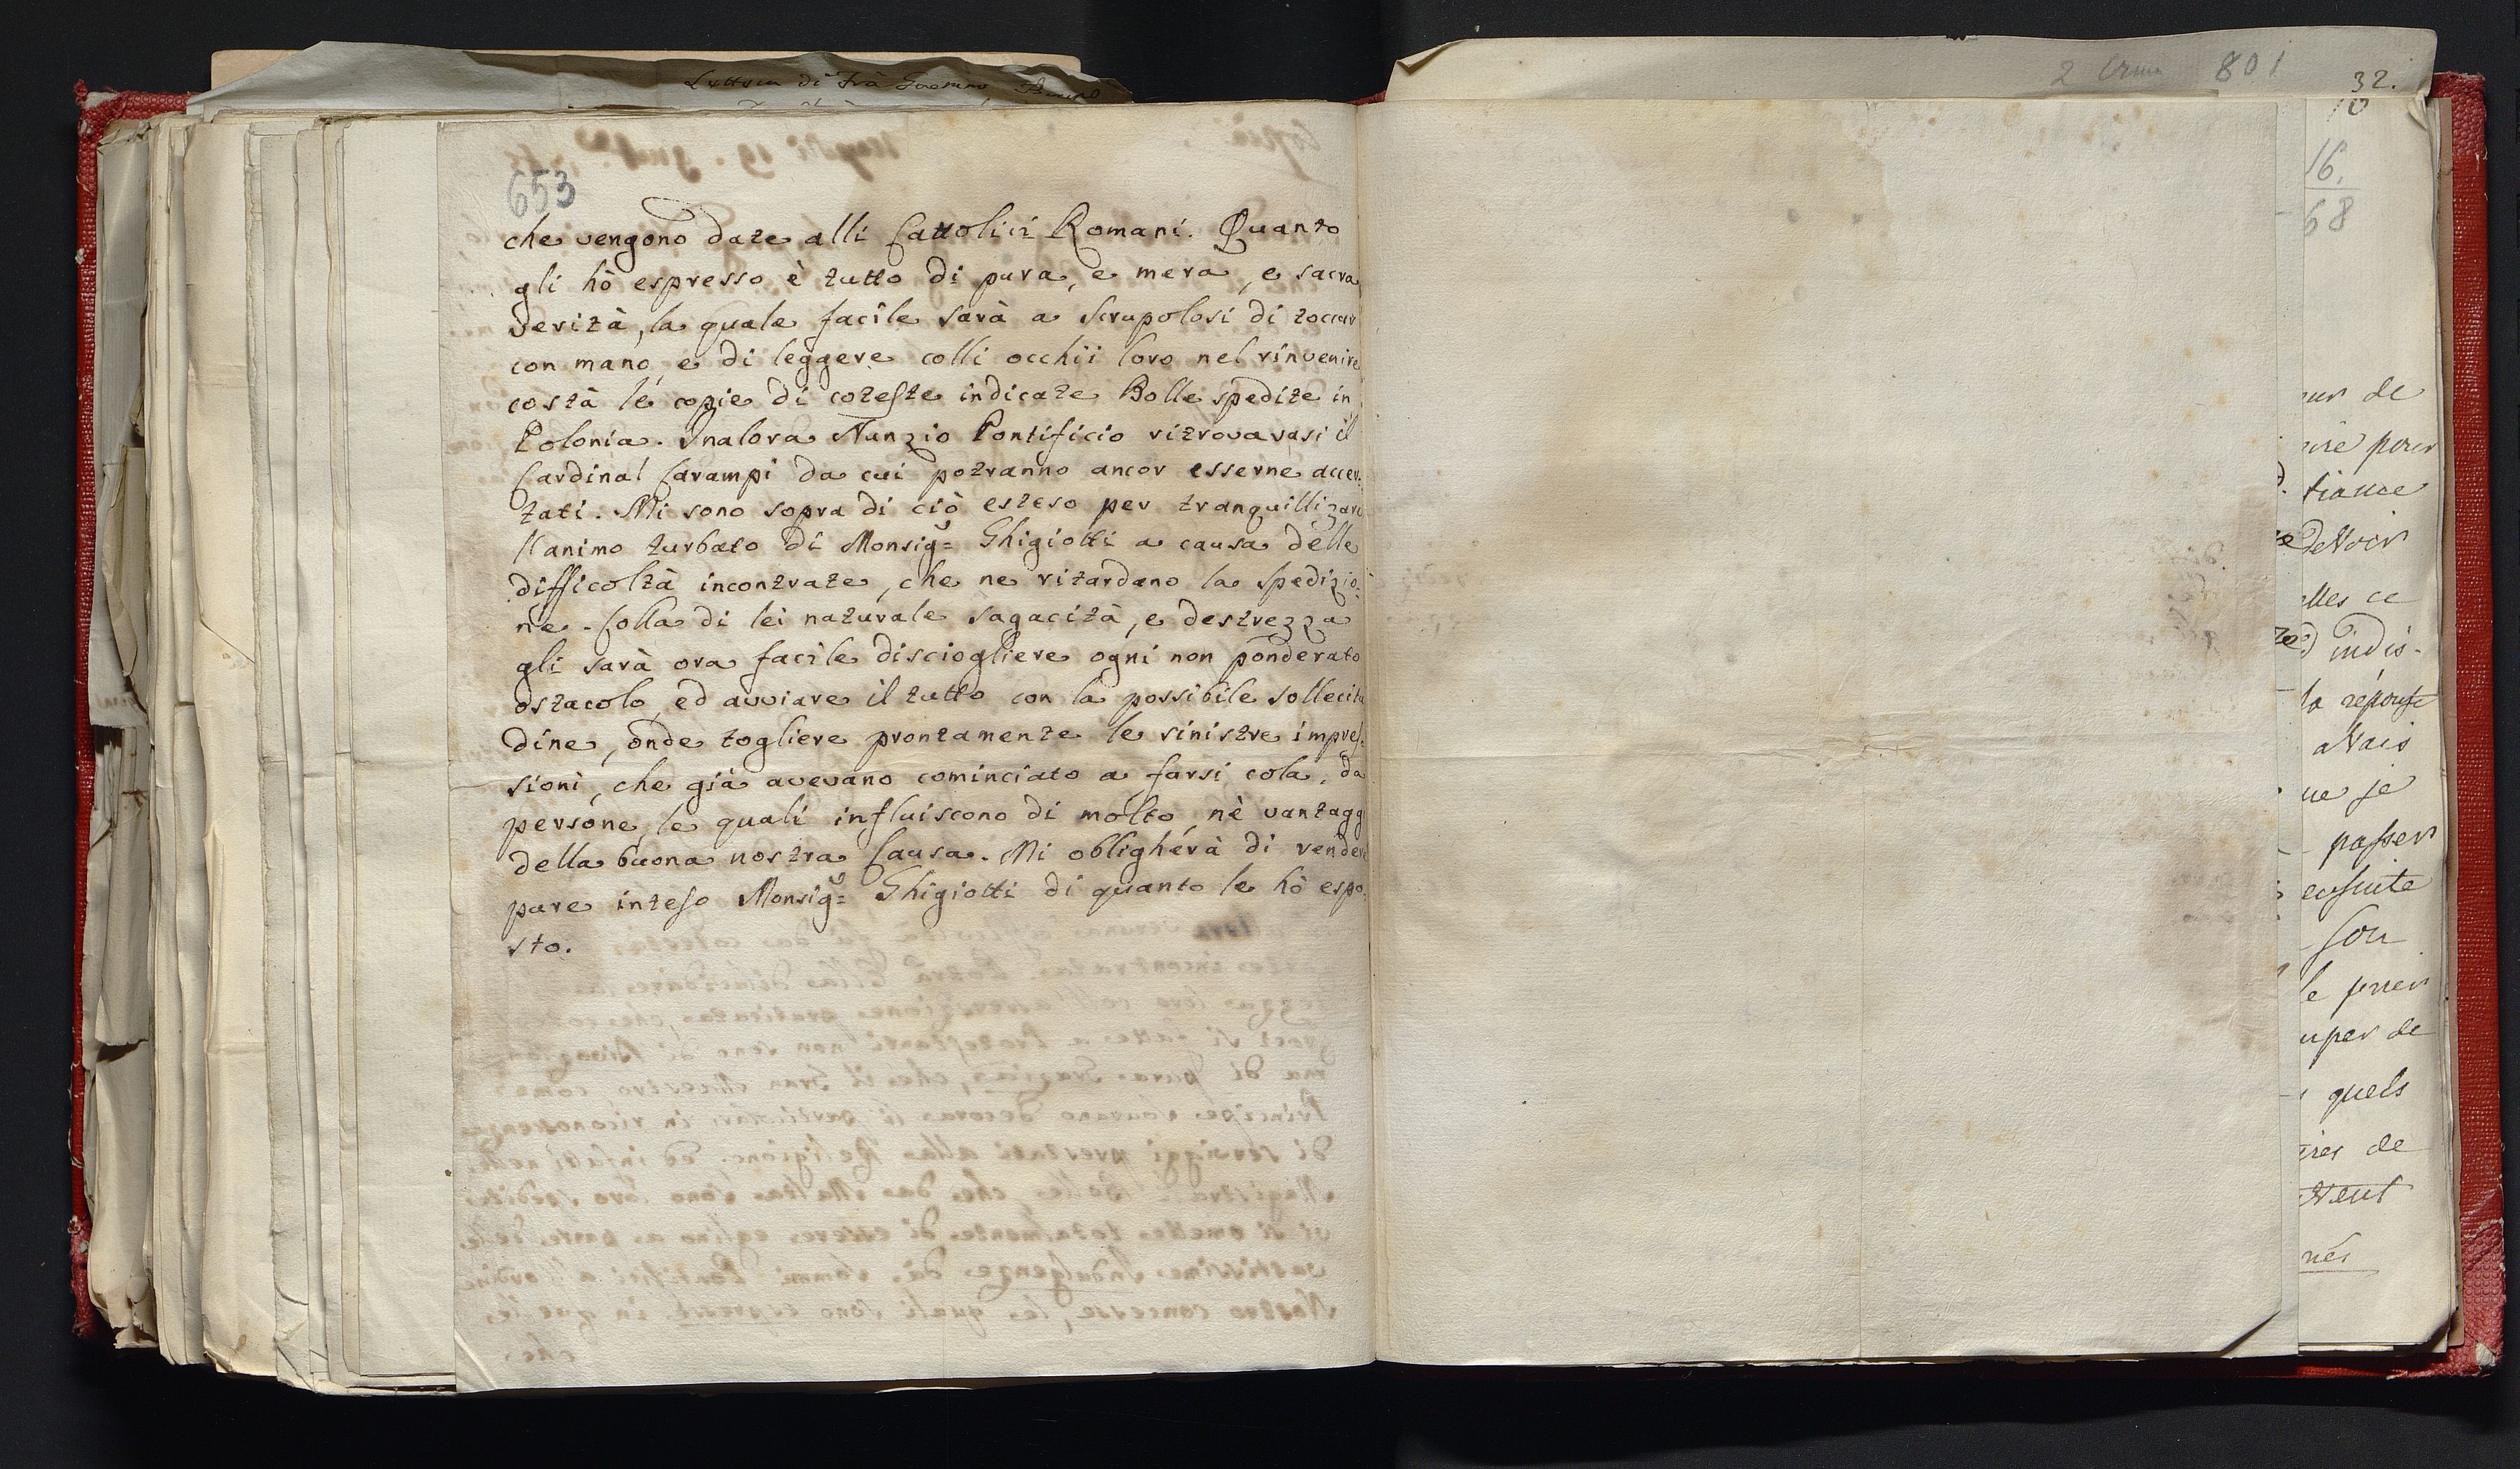 Lettera di frà Gaetano
653
che vengono date alli Cattolici Romani. Quanto
gli hò espresso è tutto di pura, e mera, e sacra
verità, la quale facile sarà a Scrupolosi di toccar
con mano, e di leggere colli occhii loro nel rinvenire
costà le copie di coteste indicate Bolle spedite in
Polonia. Inalora Nunzio Pontificio ritrovavasi il
Cardinal Garampi da cui potranno ancor esserne accer-
tati. Mi sono sopra di ciò esteso per tranquillizare
l'animo turbato di Monsig.r Ghigiotti a causa delle
difficoltà incontrate, che ne ritardano la spedizio-
ne. Colla di lei naturale sagacità, e destrezza
gli sarà ora facile disciogliere ogni non ponderato
ostacolo, ed avviare il tutto con la possibile sollecitu
dine, onde togliere prontamente le sinistre impres-
sioni, che già avevano cominciato a farsi cola, da
persone, le quali influiscono di molto, nè vantagg
della buona nostra Causa. Mi obligherà di rendere
pure inteso Monsig.r Ghigiotti di quanto le hò espo-
sto.
801
32.
16.
68
de
pour
tiance
devoir
elles ce
indis-
la réponse
avais
que je
passer
ensuite
son
le prier
de
quels
de
nés